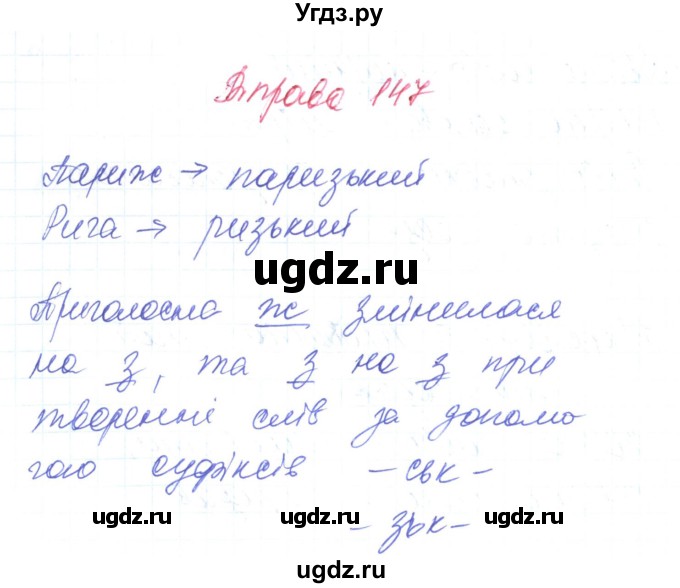 Угдз.ру
Вправа 147
Париж → паризький
Рига → ризький
ugdz.ru
Приголосна ж змінилася
на з, та з на з при
творенні слів за допомо
гою суфіксів -ськ-
ugdz.ru ugdz.ru ugdz.ru
-зьк-
ugdz.ru